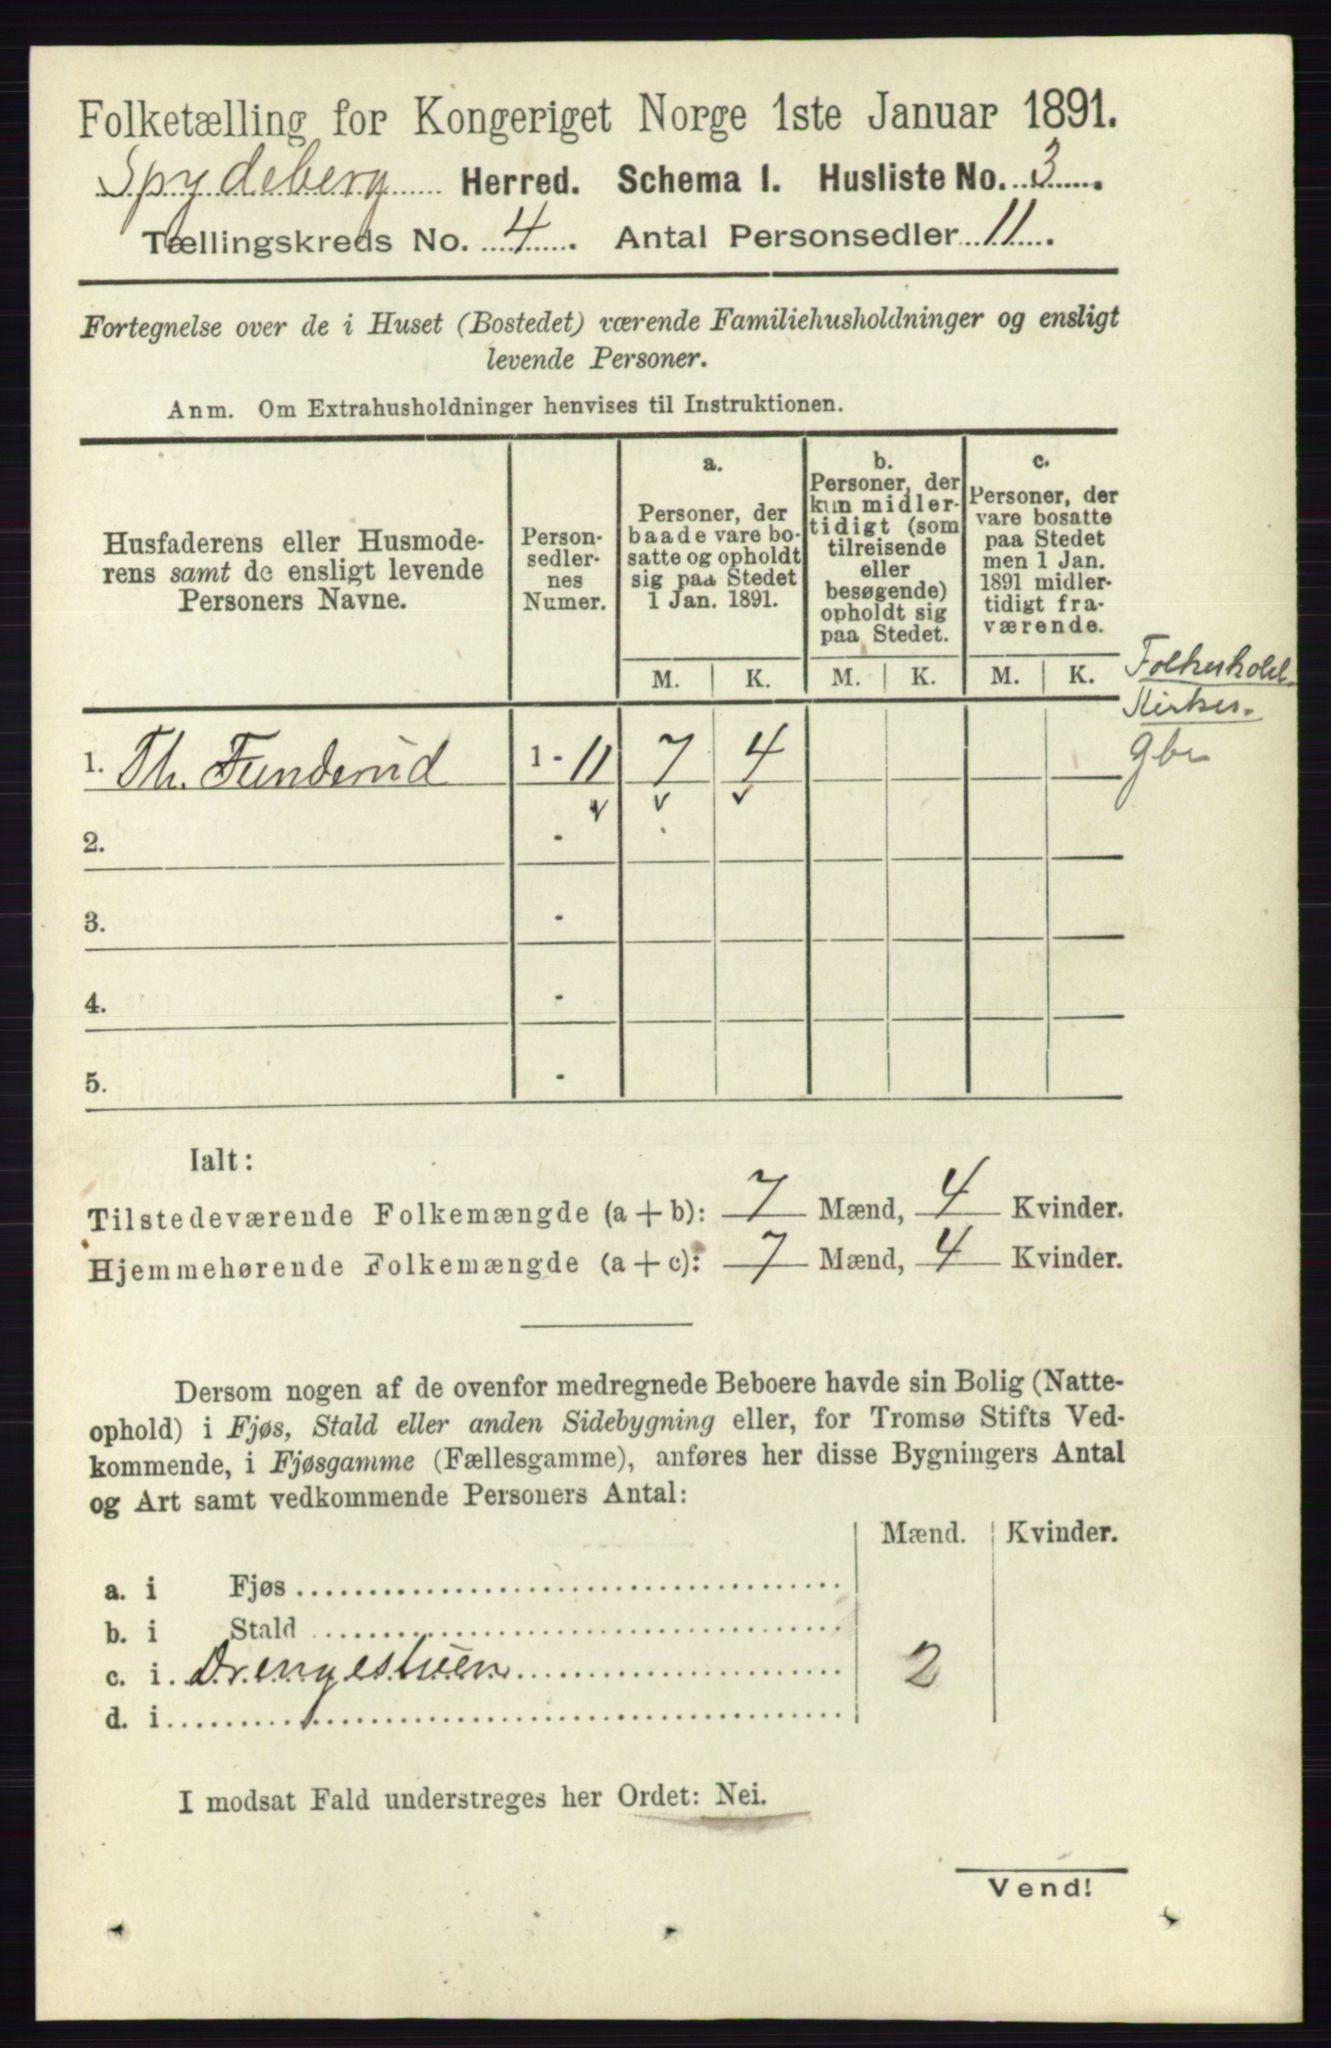 Folketælling for Kongeriget Norge 1ste Januar 1891.
Spydeberg Herred. Schema I. Husliste No. 3.
Tællingskreds No. 4. Antal Personsedler 11.
Fortegnelse over de i Huset (Bostedet) værende Familiehusholdninger og ensligt
levende Personer.
Anm. Om Extrahusholdninger henvises til Instruktionen.
Husfaderens eller Husmode-
rens samt de ensligt levende
Personers Navne.
Person-
sedler-
nes
Numer.
a.
Personer, der
baade vare bo-
satte og opholdt
sig paa Stedet
1 Jan. 1891.
b.
Personer, der
kun midler-
tidigt (som
tilreisende
eller
besøgende)
opholdt sig
paa Stedet.
c.
Personer, der
vare bosatte
paa Stedet
men 1 Jan.
1891 midler-
tidigt fra-
værende.
M. K. M. K. M. K.
Folkehold
gbr
1. Th. Funderud 1 - 11 7 4
2. -
3. -
4. -
5. -
Ialt:
Tilstedeværende Folkemængde (a + b): 7 Mænd, 4 Kvinder.
Hjemmehørende Folkemængde (a + c): 7 Mænd, 4 Kvinder.
Dersom nogen af de ovenfor medregnede Beboere havde sin Bolig (Natte-
ophold) i Fjøs, Stald eller anden Sidebygning eller, for Tromsø Stifts Ved-
kommende, i Fjøsgamme (Fællesgamme), anføres her disse Bygningers Antal
og Art samt vedkommende Personers Antal:
Mænd. Kvinder.
a. i Fjøs
b. i Stald
c. i Drengestuen 2
d. i
I modsat Fald understreges her Ordet: Nei.
Vend!